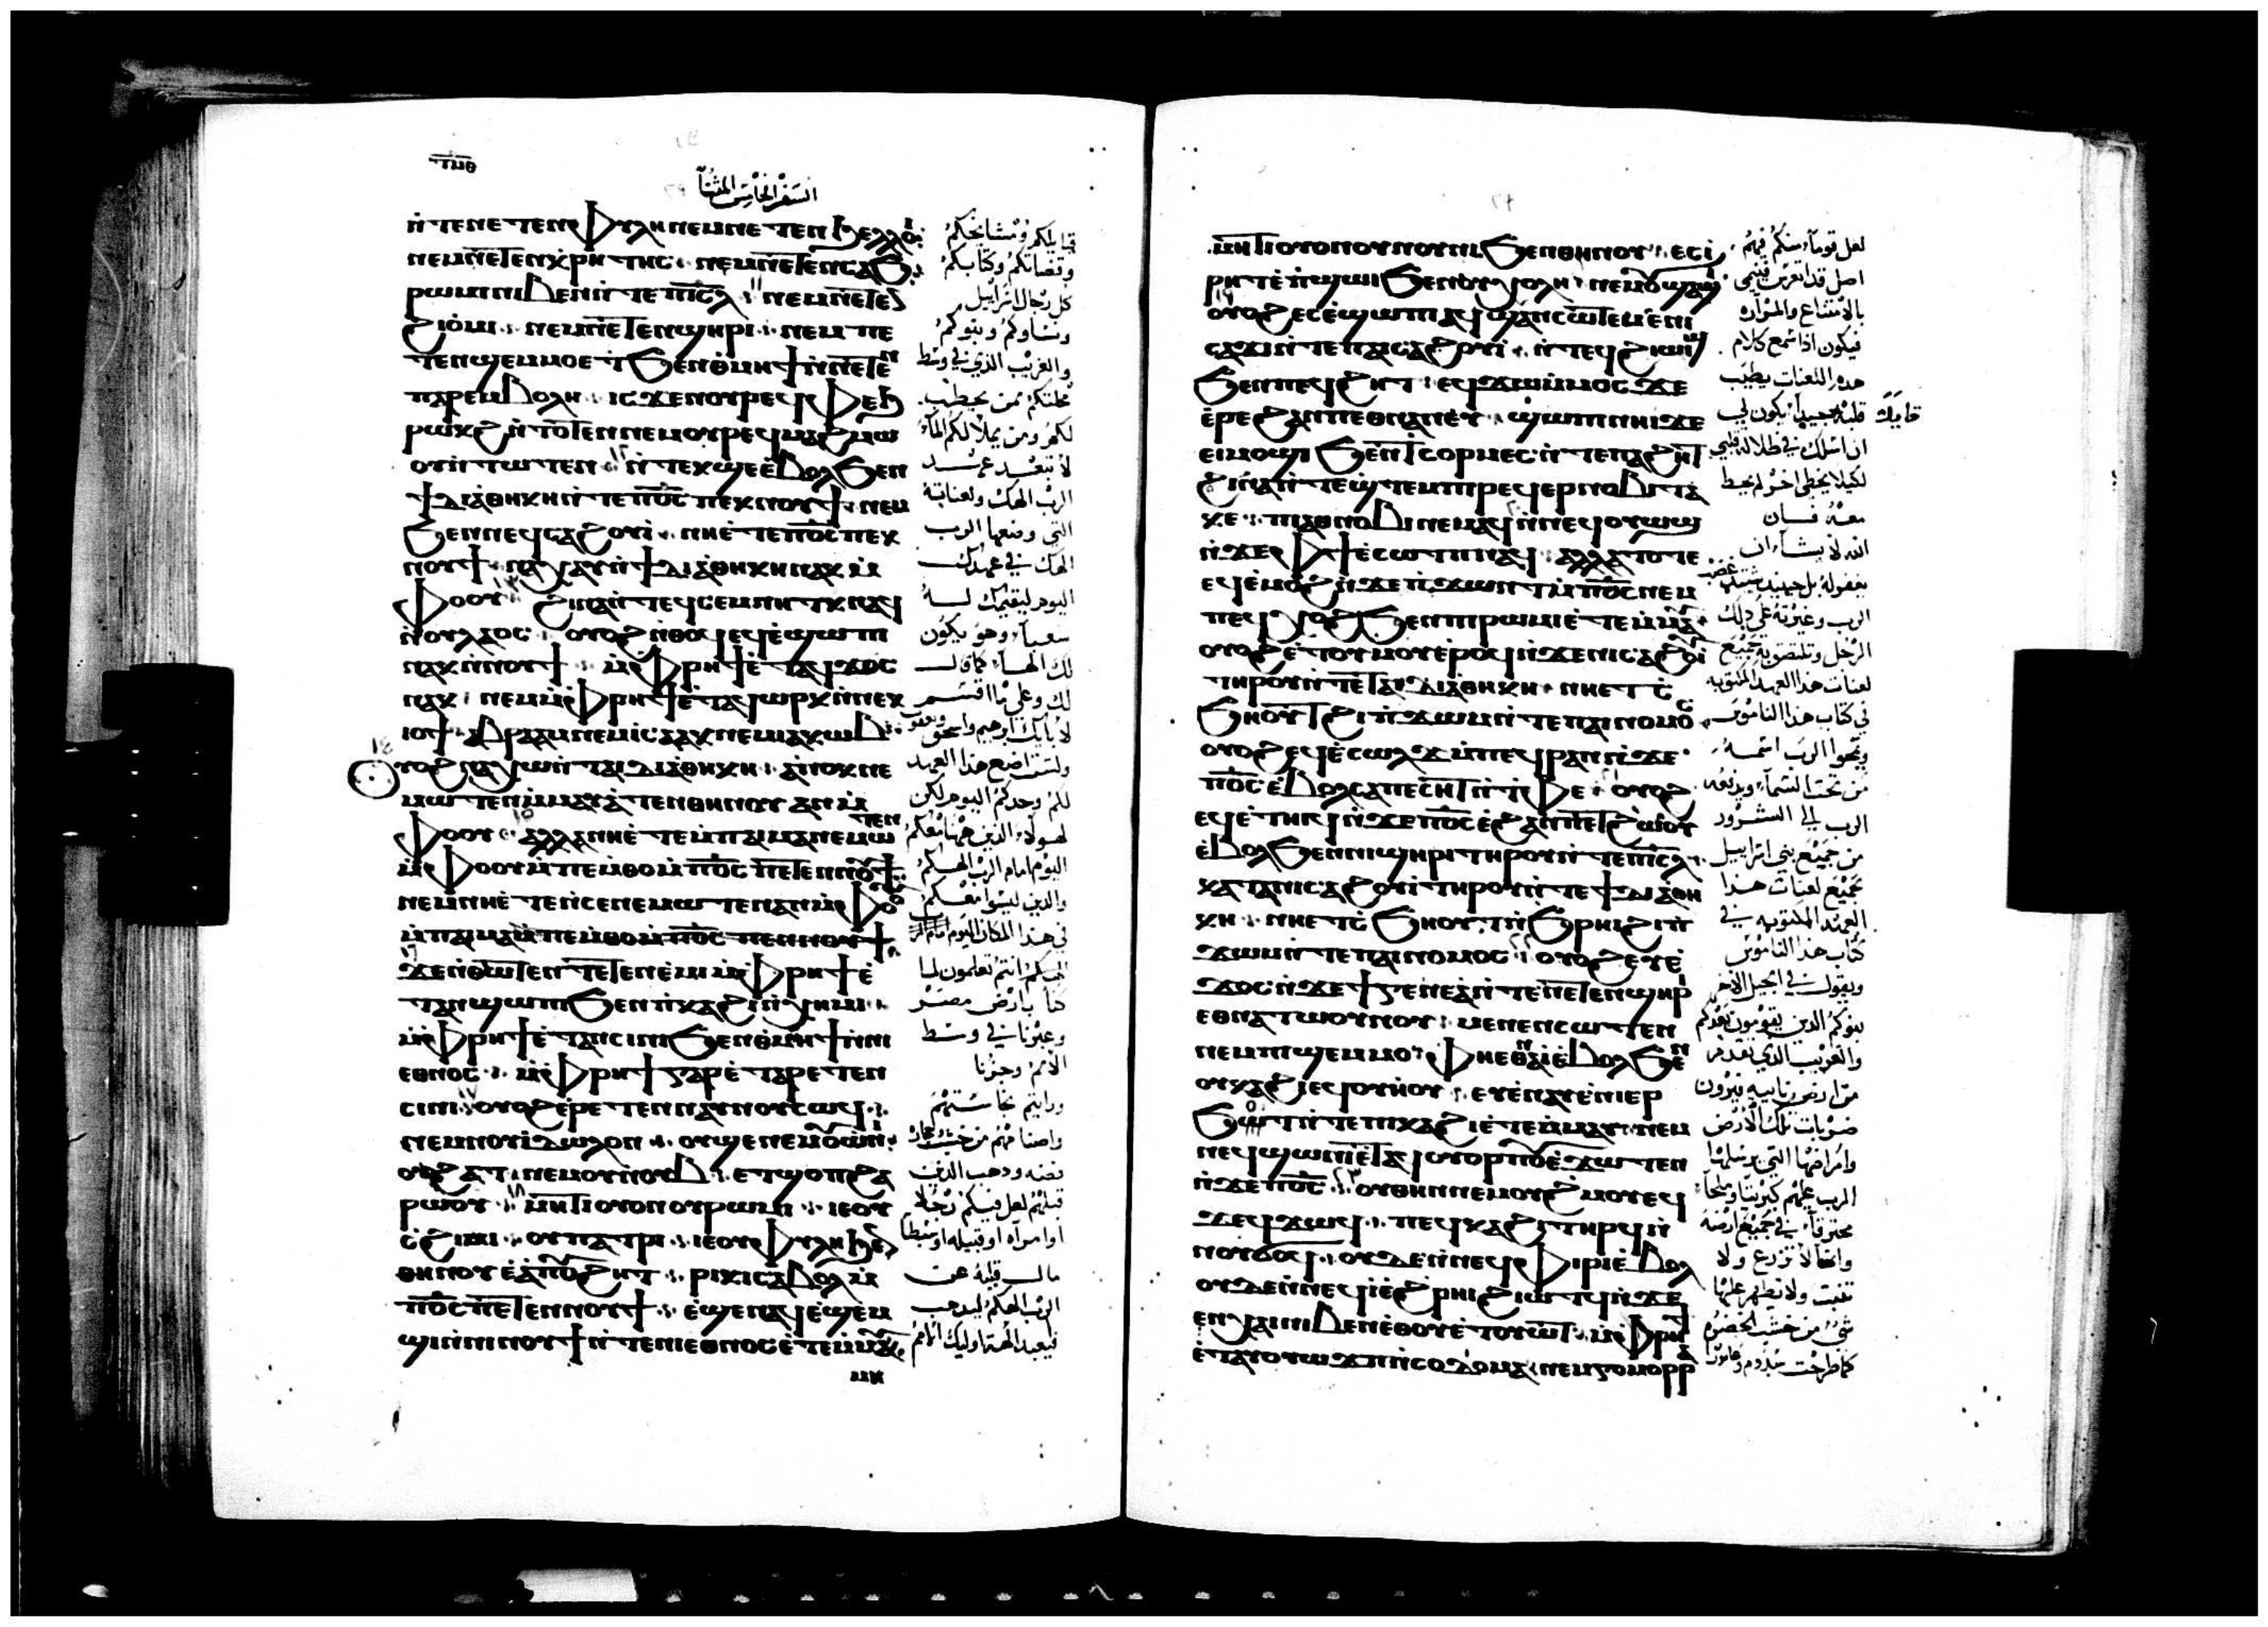 ⲧⲙⲑ
السفر الخامس المثنا
ⲛ̀ⲧⲉⲛⲉⲧⲉⲛⲫⲩⲗⲏ ⲛⲉⲙⲛⲉⲧⲉⲛϧⲉⲗⲗⲟⲓ
ⲛⲉⲙⲛⲉⲧⲉⲛⲕⲣⲓⲧⲏⲥ ⲛⲉⲙⲛⲉⲧⲉⲛⲥⲁϧ
ⲣⲱⲙⲓ ⲛⲓⲃⲉⲛ ⲛ̀ⲧⲉ ⲡⲓⲥ̅ⲗ ⲛⲉⲙⲛⲉⲧⲉⲛ
ϩⲓⲟⲙⲓ ⲛⲉⲙⲛⲉⲧⲉⲛϣⲏⲣⲓ ⲛⲉⲙ ⲡⲉ
ⲧⲉⲛϣⲉⲙⲙⲟ ⲉⲧϧⲉⲛ ⲑⲙⲏϯ ⲛ̀ⲛⲉⲧⲉⲛ
ⲡⲁⲣⲉⲙⲃⲟⲗⲏ ⲓⲥϫⲉⲛ ⲟⲩⲣⲉϥⲫⲉϧ
ⲣⲱⲕϩ ⲛ̀ⲧⲱⲧⲉⲛ ⲛⲉⲙ ⲟⲩⲣⲉϥⲙⲁϩⲙⲱ
ⲟⲩ ⲛ̀ⲧⲱⲧⲉⲛ ⲛ̀ⲧⲉⲕϣⲉ ⲉ̀ⲃⲟⲗ ϧⲉⲛ
ϯⲇⲓⲁⲑⲏⲕⲏ ⲛ̀ⲧⲉ ⲡ̅ⲟ̅ⲥ ⲡⲉⲕⲛⲟⲩϯ ⲛⲉⲙ
ϧⲉⲛ ⲛⲉϥⲥⲁϩⲟⲩⲓ̀ ⲛⲏ ⲉ̀ⲧⲉ ⲡ̅ⲟ̅ⲥ ⲡⲉⲕ
ⲛⲟⲩϯ ⲛⲁⲭⲁⲩ ⲛ̀ϯⲇⲓⲁⲑⲏⲕⲏ ⲛⲁⲕ ⲙ̀
ⲫⲟⲟⲩ ϩⲓⲛⲁ ⲛ̀ⲧⲉϥⲥⲉⲙⲛⲏⲧⲕ ⲛⲁϥ
ⲛ̀ⲟⲩⲗⲁⲟⲥ ⲟⲩⲟϩ ⲛ̀ⲑⲟϥ ⲉϥⲉ̀ϣⲱⲡⲓ
ⲛⲁⲕ ⲛ̀ⲛⲟⲩϯ ⲙ̀ⲫⲣⲏϯ ⲉ̀ⲧⲁϥϫⲟⲥ
ⲛⲁⲕ ⲛⲉⲙ ⲙ̀ⲫⲣⲏϯ ⲉ̀ⲧⲁϥⲱⲣⲕ ⲛ̀ⲛⲉⲕ
ⲓⲟϯ ⲁⲃⲣⲁⲁⲙ ⲛⲉⲙ ⲓⲥⲁⲁⲕ ⲛⲉⲙ ⲓⲁⲕⲱⲃ
ⲟⲩⲟϩ ⲛⲁⲓⲭⲱ ⲛ̀ⲧⲁⲓⲇⲓⲁⲑⲏⲕⲏ ⲁⲛⲟⲕ ⲛⲉ
ⲙⲱⲧⲉⲛ ⲙ̀ⲙⲁⲩⲁ̀ⲧⲉⲛⲑⲏⲛⲟⲩ ⲁⲛ ⲙ̀
ⲫⲟⲟⲩ ⲁⲗⲗⲁ ⲛⲏ ⲉ̀ⲧⲉ ⲙ̀ⲡⲁⲓⲙⲁ ⲛⲉⲙⲱⲧⲉⲛ
ⲙ̀ⲫⲟⲟⲩ ⲙ̀ⲡⲉⲙⲑⲟ ⲙ̀ⲡ̅ⲟ̅ⲥ ⲡⲉⲧⲉⲛⲛⲟⲩϯ
ⲛⲉⲙ ⲛⲏ ⲉ̀ⲧⲉ ⲛ̀ⲥⲉⲛⲉⲙⲱⲧⲉⲛ ⲁⲛ ⲙ̀ⲫⲟⲟⲩ
ⲙ̀ⲡⲁⲓⲙⲁ ⲙ̀ⲡⲉⲙⲑⲟ ⲙ̀ⲡ̅ⲟ̅ⲥ ⲡⲉⲛⲛⲟⲩϯ
ϫⲉ ⲛ̀ⲑⲱⲧⲉⲛ ⲧⲉⲧⲉⲛⲉ̀ⲙⲓ ⲙ̀ⲫⲣⲏϯ ⲉ̀
ⲧⲁⲛϣⲱⲡⲓ ϧⲉⲛ ⲡ̀ⲕⲁϩⲓ ⲛ̀ⲭⲏⲙⲓ
ⲙ̀ⲫⲣⲏϯ ⲉ̀ⲧⲁⲛⲥⲓⲛⲓ ϧⲉⲛ ⲑⲙⲏϯ ⲛ̀ⲛⲓ
ⲉⲑⲛⲟⲥ ⲙ̀ⲫⲣⲏϯ ⲅⲁⲣ ⲉ̀ⲧⲁⲣⲉⲧⲉⲛ
ⲥⲓⲛⲓ ⲟⲩⲟϩ ⲉ̀ⲣⲉⲧⲉⲛⲛⲁⲩ ⲛⲟⲩⲥⲱϥ
ⲛⲉⲙ ⲛⲟⲩⲓⲇⲱⲗⲟⲛ ⲟⲩϣⲉ ⲛⲉⲙ ⲟⲩⲱⲛⲓ
ⲟⲩϩⲁⲧ ⲛⲉⲙ ⲟⲩⲛⲟⲩⲃ ⲉⲧϣⲟⲡ ϩⲁ
ⲣⲱⲟⲩ ⲙⲏⲧⲓ ⲟⲩⲟⲛ ⲟⲩⲣⲱⲙⲓ ⲓⲉ ⲟⲩ
ⲥ̀ϩⲓⲙⲓ ⲟⲩⲡⲁⲧⲣⲓ ⲓⲉ ⲟⲩⲫⲩⲗⲏ ϧⲉⲛ
ⲑⲏⲛⲟⲩ ⲉⲁⲡⲟⲩϩⲏⲧ ⲣⲓⲕⲓ ⲥⲁⲃⲟⲗ ⲙ̀
ⲡ̅ⲟ̅ⲥ ⲡⲉⲧⲉⲛⲛⲟⲩϯ ⲉ̀ϣⲉⲛⲁϥ ⲉ̀ϣⲉⲙ
ϣⲓ ⲛ̀ⲛⲓⲛⲟⲩϯ ⲛ̀ⲧⲉ ⲛⲓⲉⲑⲛⲟⲥ ⲉ̀ⲧⲉⲙⲙⲁⲩ
ⲙⲏ
قبايلكم ومشايخكم
وقضاتكم وكتابكم
كل رجال اسراييل
ونساوكم وبنوكم
والغريب الذي في وسط
محلتكم ممن يحطب
لكم ومن يملا لكم الماء
لا تبتعد عن عهد
الرب الهك ولعناته
التي وضعها الرب
الهك في عهدك
اليوم ليقيمك له
شعبا وهو يكون
لك الها كما قال
لك وعلى ما اقسم
لابايك ابرهيم واسحق ويعقوب
ولست اضع هذا العهد
لكم وحدكم اليوم لكن
لهولاء الذين ههنا معكم
اليوم امام الرب الهكم
والذين ليسوا معكم
في هذا المكان اليوم امام الرب
الهكم انتم تعلمون لما
كنا بارض مصر
وعبرنا في وسط
الامم وجزنا
ورايتم نجاستهم
واصنامهم من خشب وحجارة
فضه وذهب الذين
قبلهم لعل فيكم رجلا
او امراه او قبيله او سبطا
مال قلبه عن
الرب الهكم ليذهب
فيعبد الهة اوليك الامم
ⲙⲏⲧⲓ ⲟⲩⲟⲛ ⲟⲩⲛⲟⲩⲛⲓ ϧⲉⲛ ⲑⲏⲛⲟⲩ ⲉⲥⲓ
ⲣⲏⲧ ⲉ̀ⲡ̀ϣⲱⲓ ϧⲉⲛ ⲟⲩⲭⲟⲗⲏ ⲛⲉⲙ ⲟⲩϣⲁϣⲓ
ⲟⲩⲟϩ ⲉⲥⲉ̀ϣⲱⲡⲓ ⲁϥϣⲁⲛⲥⲱⲧⲉⲙ ⲉ̀ⲛⲓ
ⲥⲁϫⲓ ⲛ̀ⲧⲉ ⲡⲁⲓⲥⲁϩⲟⲩⲓ̀ ⲛ̀ⲧⲉϥϩⲓⲱⲓϣ
ϧⲉⲛ ⲡⲉϥϩⲏⲧ ⲉϥϫⲱ ⲙ̀ⲙⲟⲥ ϫⲉ
ⲉ̀ⲣⲉ ϩⲁⲛⲡⲉⲑⲛⲁⲛⲉⲩ ϣⲱⲡⲓ ⲛⲏⲓ ϫⲉ
ⲉⲓⲙⲟϣⲓ ϧⲉⲛ ϯⲥⲟⲣⲙⲉⲥ ⲛ̀ⲧⲉ ⲡⲁϩⲏⲧ
ϩⲓⲛⲁ ⲛ̀ⲧⲉϣⲧⲉⲙ ⲡⲓⲣⲉϥⲉⲣⲛⲟⲃⲓ ⲧⲁ
ⲕⲉ ⲡⲓⲁⲑⲛⲟⲃⲓ ⲛⲉⲙⲁϥ ⲛ̀ⲛⲉϥⲟⲩⲱϣ
ⲛ̀ϫⲉ ⲫϯ ⲉ̀ⲥⲱⲧⲡ ⲛⲁϥ ⲁⲗⲗⲁ ⲧⲟⲧⲉ
ⲉϥⲉ̀ⲙⲟϩ ⲛ̀ϫⲉ ⲡ̀ϫⲱⲛⲧ ⲙ̀ⲡ̅ⲟ̅ⲥ ⲛⲉⲙ
ⲡⲉϥⲭⲟϩ ϧⲉⲛ ⲡⲓⲣⲱⲙⲓ ⲉ̀ⲧⲉⲙⲙⲁⲩ
ⲟⲩⲟϩ ⲉ̀ⲧⲟⲩⲙⲟⲩ ⲉ̀ⲣⲟϥ ⲛ̀ϫⲉ ⲛⲓⲥⲁϩⲟⲩⲓ
ⲧⲏⲣⲟⲩ ⲛ̀ⲧⲉ ⲧⲁⲓⲇⲓⲁⲑⲏⲕⲏ ⲛⲏ ⲉⲧⲥ̀
ϧⲏⲟⲩⲧ ϩⲓ ⲡ̀ϫⲱⲙ ⲛ̀ⲧⲉ ⲡⲁⲓⲛⲟⲙⲟⲥ
ⲟⲩⲟϩ ⲉϥⲉ̀ⲥⲱⲗϫ ⲙ̀ⲡⲉϥⲣⲁⲛ ⲛ̀ϫⲉ
ⲡ̅ⲟ̅ⲥ ⲉ̀ⲃⲟⲗ ⲥⲁⲡⲉⲥⲏⲧ ⲛ̀ⲧⲫⲉ ⲟⲩⲟϩ
ⲉϥⲉ̀ⲧⲏⲓϥ ⲛ̀ϫⲉ ⲡ̅ⲟ̅ⲥ ⲉ̀ϩⲁⲛⲡⲉⲧϩⲱⲟⲩ
ⲉ̀ⲃⲟⲗ ϧⲉⲛ ⲛⲓϣⲏⲣⲓ ⲧⲏⲣⲟⲩ ⲛ̀ⲧⲉ ⲡⲓⲥ̅ⲗ
ⲕⲁⲧⲁ ⲛⲓⲥⲁϩⲟⲩⲓ̀ ⲧⲏⲣⲟⲩ ⲛ̀ⲧⲉ ϯⲇⲓⲁⲑⲏ
ⲕⲏ ⲛⲏ ⲉⲧⲥ̀ϧⲏⲟⲩⲧ ⲛ̀ϧⲣⲏⲓ ϩⲓ ⲡ̀
ϫⲱⲙ ⲛ̀ⲧⲉ ⲡⲁⲓⲛⲟⲙⲟⲥ ⲟⲩⲟϩ ⲉⲩⲉ̀
ϫⲟⲥ ⲛ̀ϫⲉ ϯⲅⲉⲛⲉⲁ ⲛ̀ⲧⲉ ⲛⲉⲧⲉⲛϣⲏⲣⲓ
ⲉⲑⲛⲁⲧⲱⲟⲩⲛⲟⲩ ⲙⲉⲛⲉⲛⲥⲱⲧⲉⲛ
ⲛⲉⲙ ⲡⲓϣⲉⲙⲙⲟ ⲫⲏ ⲉⲑⲛⲁⲓ̀ ⲉ̀ⲃⲟⲗ ϧⲉⲛ
ⲟⲩⲕⲁϩⲓ ⲉϥⲟⲩⲏⲟⲩ ⲉⲩⲉ̀ⲛⲁⲩ ⲉ̀ⲛⲓⲉⲣ
ϧⲱⲧ ⲛ̀ⲧⲉ ⲡⲓⲕⲁϩⲓ ⲉ̀ⲧⲉⲙⲙⲁⲩ ⲛⲉⲙ
ⲛⲉϥϣⲱⲛⲓ ⲉ̀ⲧⲁϥⲟⲩⲟⲣⲡⲟⲩ ⲉ̀ϫⲱⲧⲉⲛ
ⲛ̀ϫⲉ ⲡ̅ⲟ̅ⲥ ⲟⲩⲑⲏⲛ ⲛⲉⲙ ⲟⲩϩⲙⲟⲩ ⲉϥ
ϫⲉϥϫⲱϥ ⲡⲉϥⲕⲁϩⲓ ⲧⲏⲣϥ ⲛ̀
ⲛⲟⲩϭⲟϥ ⲟⲩⲇⲉ ⲛ̀ⲛⲉϥⲫⲓⲣⲓ ⲉ̀ⲃⲟⲗ
ⲟⲩⲇⲉ ⲛ̀ⲛⲉϥⲓ̀ ⲉ̀ϩⲣⲏⲓ ϩⲓⲱⲧϥ ⲛ̀ϫⲉ
ⲉⲛⲭⲁⲓ ⲛⲓⲃⲉⲛ ⲉⲑⲟⲩⲉⲧⲟⲩⲱⲧ ⲙ̀ⲫⲣⲏϯ
ⲉ̀ⲧⲁⲩⲟⲩⲱϫⲡ ⲛ̀ⲥⲟⲇⲟⲙⲁ ⲛⲉⲙ ⲅⲟⲙⲟⲣⲣⲁ
لعل قوما منكم فيهم
اصل قد اتعرس فينمي
بالامتناع والمراره
فيكون اذا سمع كلام
هذه اللعنات يطيب
قلبه مجيبا يكون لي
قايلا
ان اسلك في ظلالة قلبي
لكيلا يخطي اخر لم يخط
معه فان
الله لا يشاء ان
يغفر له بل حينيذ يشتد غضب
الرب وغيرته على ذلك
الرجل وتلتصق به جميع
لعنات هذا العهد المكتوبه
في كتاب هذا الناموس
ويمحوا الرب اسمه
من تحت السماء ويدفعه
الرب الى الشرور
من جميع بني اسراييل
بجميع لعنات هذا
العهد المكتوبه في
كتاب هذا الناموس
ويقول في الجيل الاخر
بنوكم الذين يقومون بعدكم
والغريب الذي يقدم
من ارض نايبه فيرون
ضربات تلك الارض
وامراضها التي يرسلها
الرب عليهم كبريتا وملحا
محترقا في جميع ارضه
وانها لا تزرع ولا
تنبت ولا يظهر عليها
شي من خشب الخضره
كما طرحت سدوم وعامورا